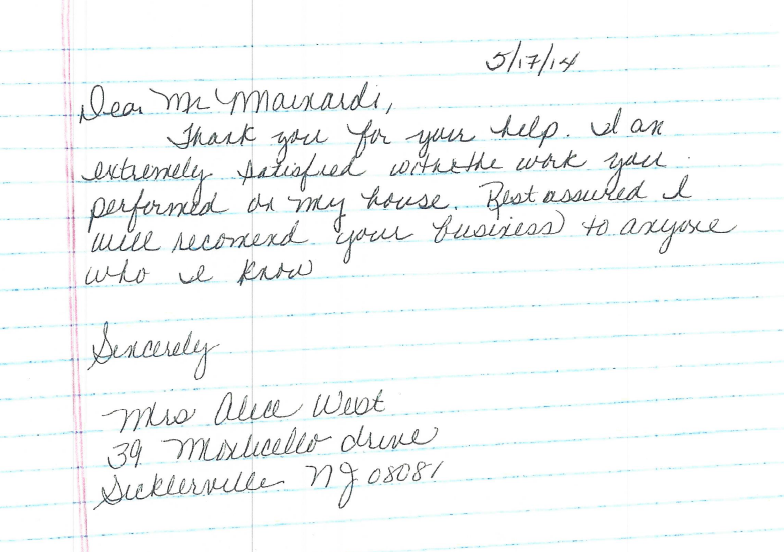 5/17/14
Dear Mr Mainardi,
Thank you for your help. I am
extremely satisfied with the work you
performed on my house. Rest assured I
will recomend your business to anyone
who I know
Sincerely
Mrs Alice West
39 Monticello drive
Sicklerville NJ 08081